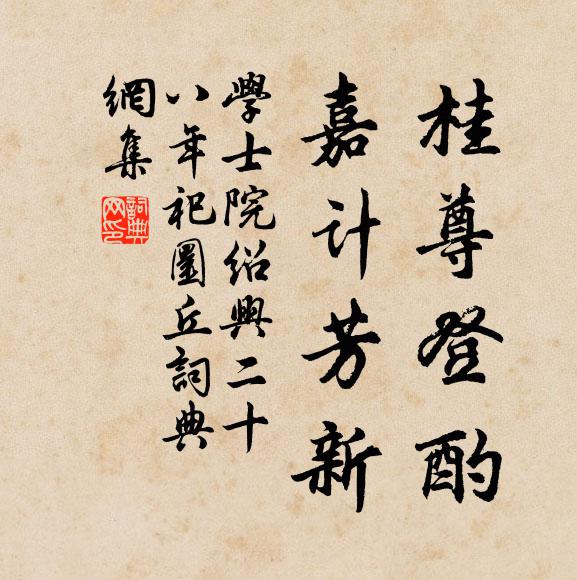 桂尊登酌
嘉计芳新
學士院紹興二十
八年祀圜丘詞典
網集
詞典網印